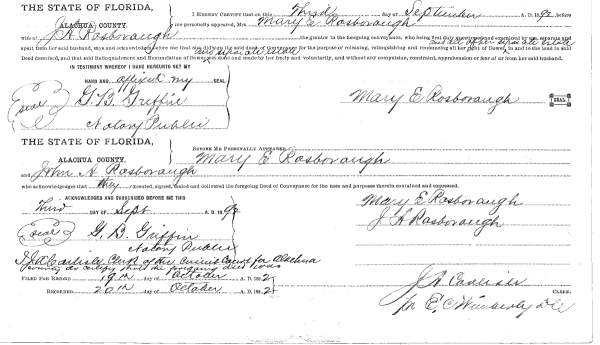 THE STATE OF FLORIDA,
ALACHUA COUNTY.
I HEREBY CERTIFY that on this Third day of September A. D. 1892 before
me personally appeared, Mrs. Mary E. Rosborough
wife of J A Rosborough the grantor in the foregoing conveyance, who being by me duly questioned and examined separate and
apart from her said husband, says and acknowledges before me that she did join the said deed of Conveyance for the purpose of releasing, relinquishing and renouncing all her right of Dower, and all other separate estate in and to the land in
Deed described, and that said Relinquishment and Renunciation of Dower and separate estate done and made by her freely and voluntarily, and without any compulsion, constraint apprehension or fear of or from her said husband.
IN TESTIMONY WHEREOF I HAVE HEREUNTO SET MY
HAND AND affixed my SEAL
seal G. B. Griffin
Notary Public
Mary E Rosborough SEAL
THE STATE OF FLORIDA,
ALACHUA COUNTY.
BEFORE ME PERSONALLY APPEARED
Mary E Rosborough
and John A. Rosborough
who acknowledges that they executed, signed, sealed and delivered the foregoing Deed of Conveyance for the uses and purposes therein contained and expressed.
ACKNOWLEDGED AND SUBSCRIBED BEFORE ME THIS
Third DAY OF Sept A. D. 1892
Mary E Rosborough
J A Rosborough
seal G. B. Griffin
Notary Public
I J A Carlisle Clerk of the Circuit Court for Alachua
County do certify that the foregoing deed was
FILED FOR RECORD 19th day of October A. D. 1892
RECORDED 20th day of October A. D. 1892
J A Carlisle CLERK.
pr E. C Wimberly DC